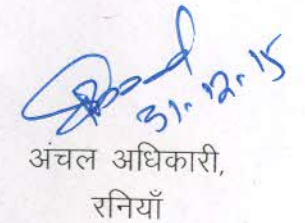 31.12.15
अंचल अधिकारी,
रनियाँ